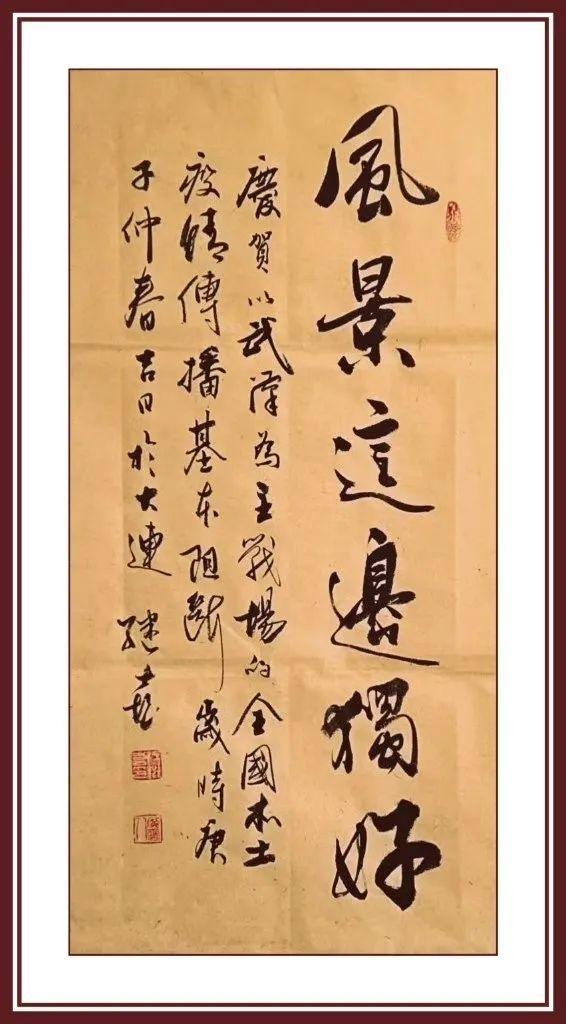 風景這邊獨好
慶賀以武漢為主戰場的全國本土
疫情傳播基本阻斷 歲時庚
子仲春吉日於大連 繼